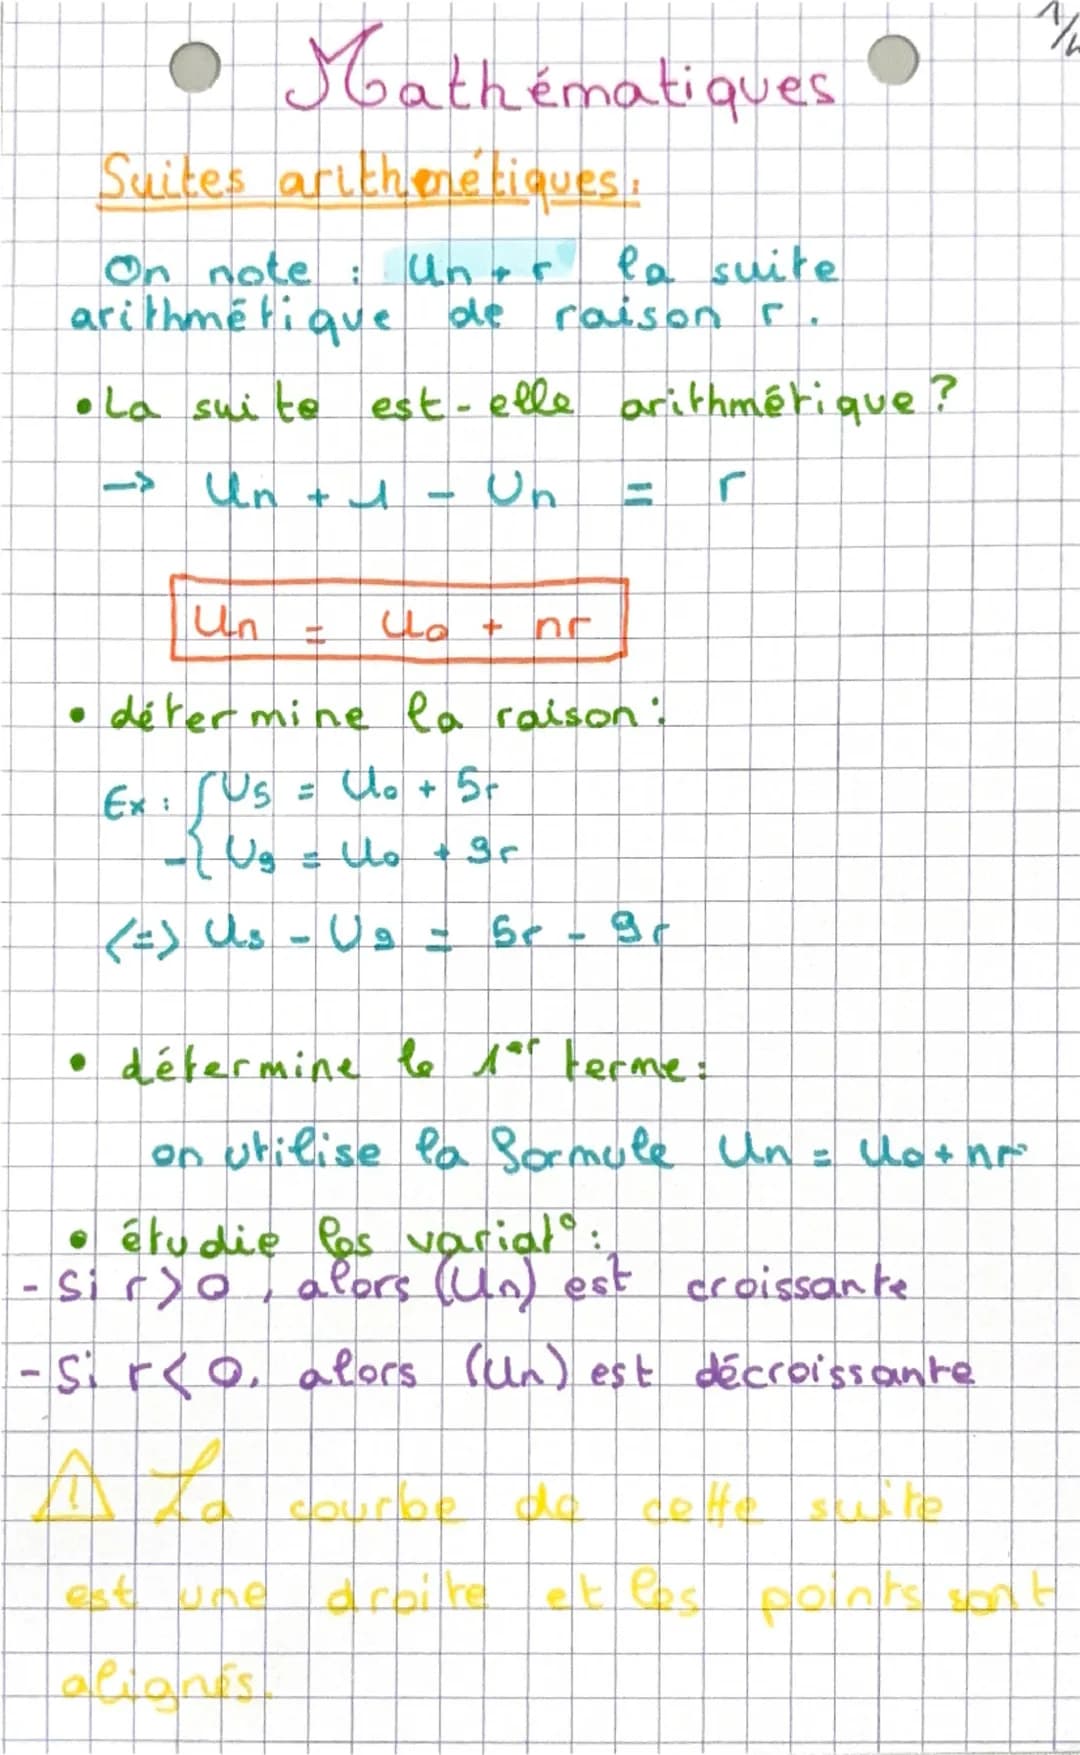 1/4
Mathématiques
Suites arithmétiques:
On note : Un + r la suite
arithmétique de raison r.
• La suite est-elle arithmétique ?
→ Un + 1 - Un = r
Un = U0 + nr
• détermine la raison :
Ex : { U5 = U0 + 5r
- { U9 = U0 + 9r
<=> U5 - U9 = 5r - 9r
• détermine le 1er terme :
on utilise la formule Un = U0 + nr
• étudie les variat° :
- Si r > 0, alors (Un) est croissante
- Si r < 0, alors (Un) est décroissante
⚠ La courbe de cette suite
est une droite et les points sont
alignés.